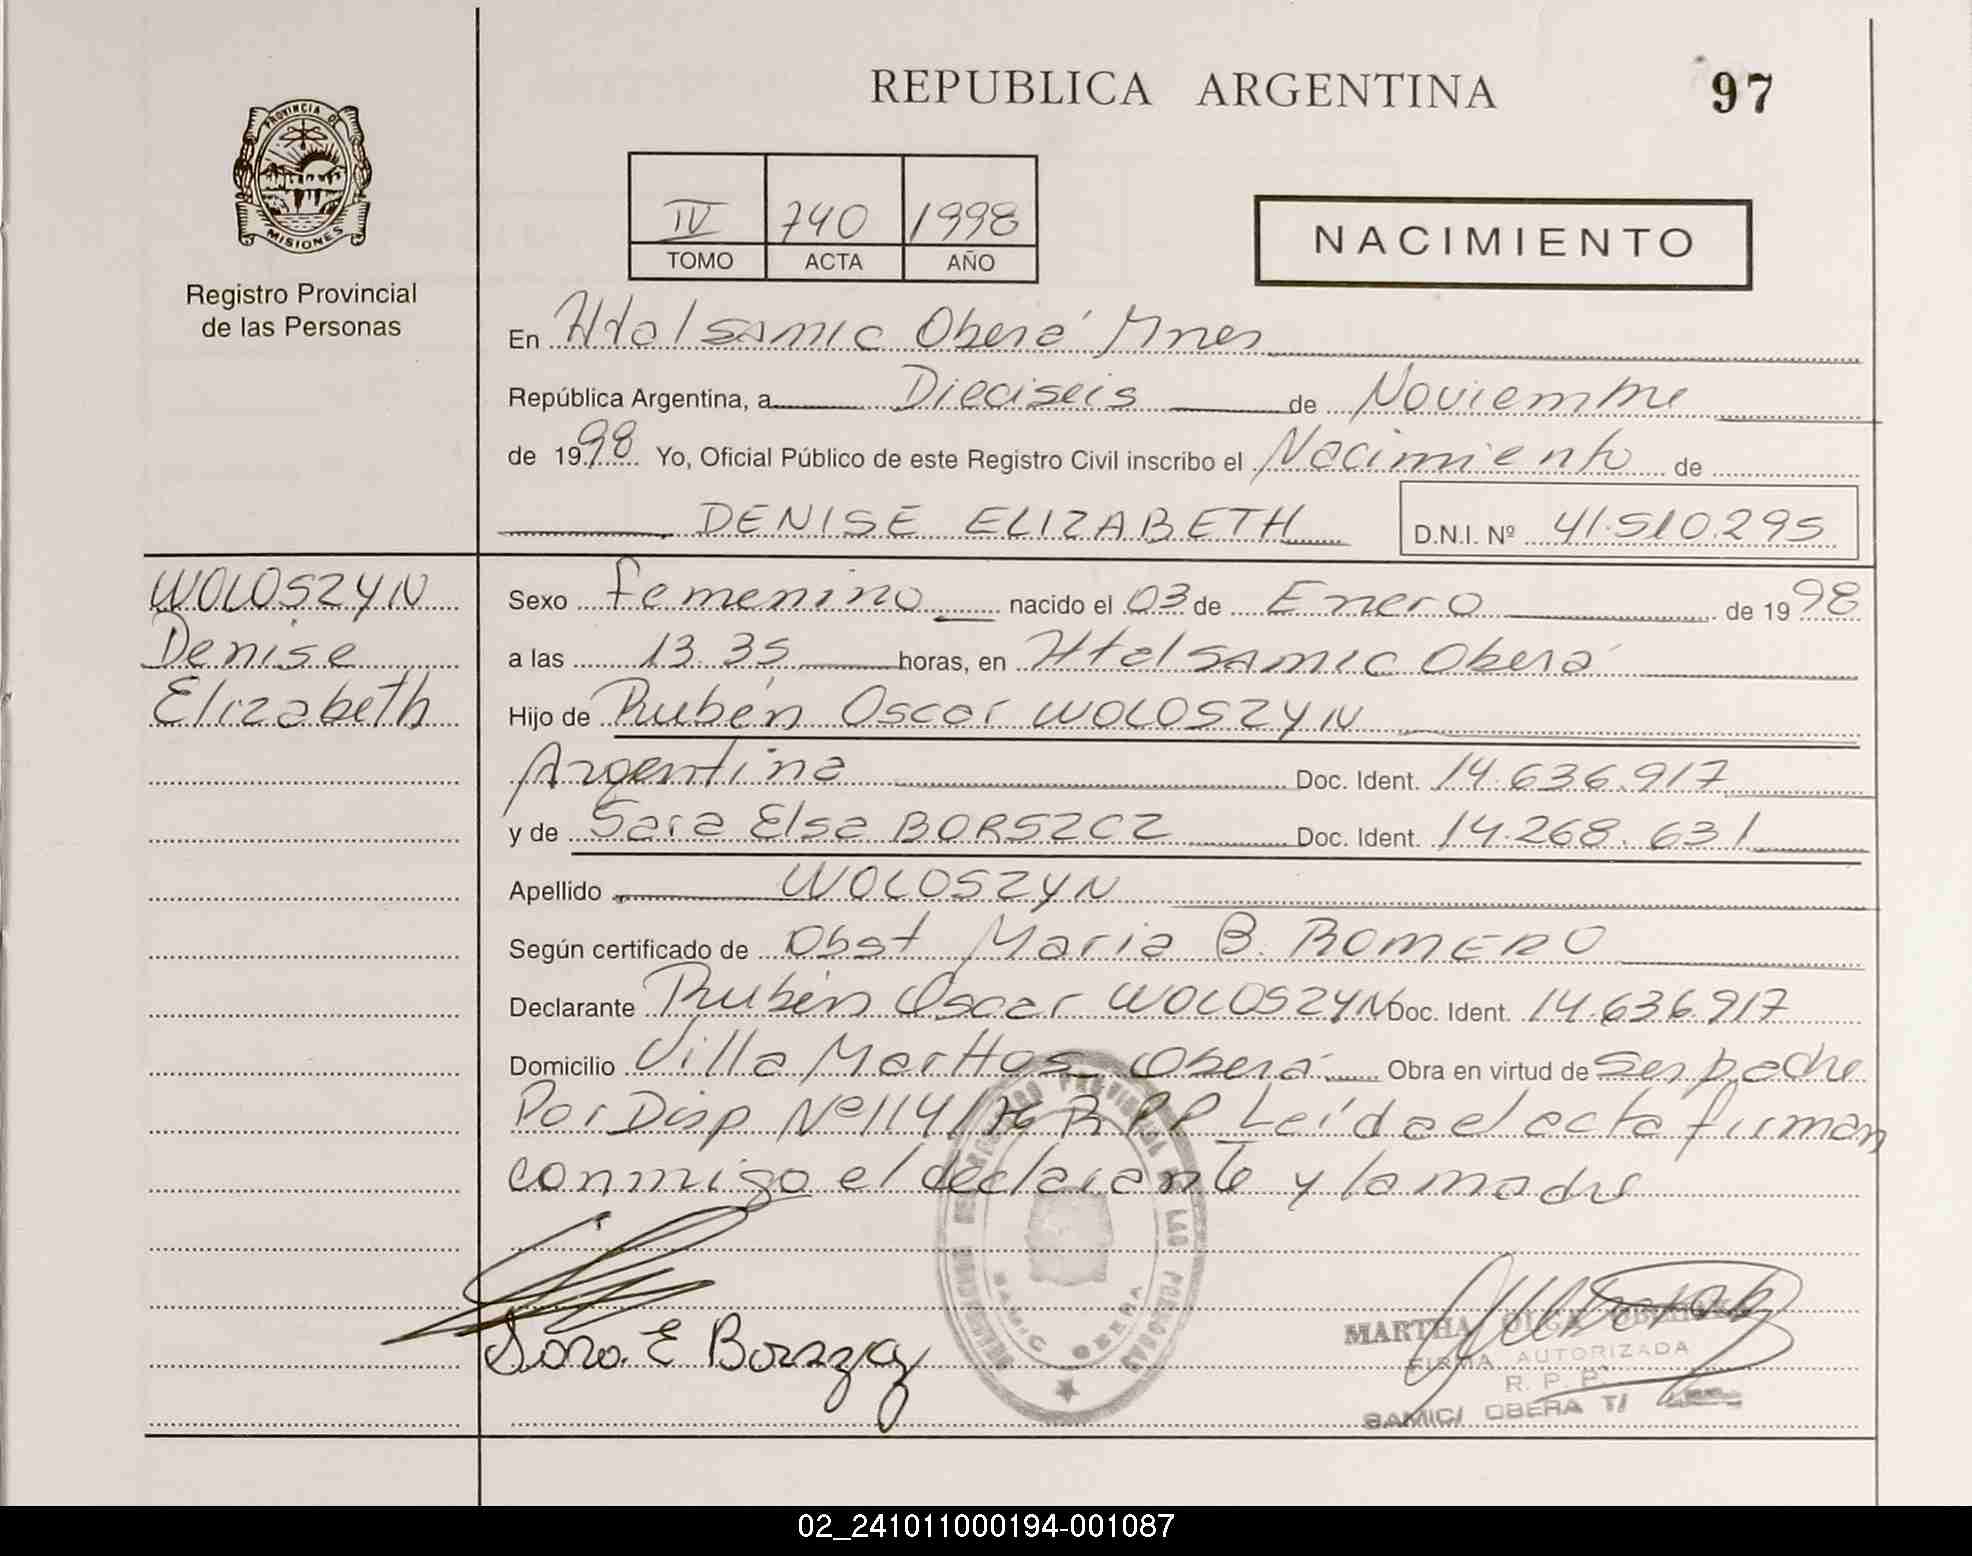 REPUBLICA ARGENTINA
97
PROVINCIA DE
MISIONES
Registro Provincial
de las Personas
IV 740 1998
TOMO ACTA AÑO
NACIMIENTO
En Htal SAMIC Oberá Mnes
República Argentina, a Dieciseis de Noviembre
de 1998 Yo, Oficial Público de este Registro Civil inscribo el Nacimiento de
DENISE ELIZABETH D.N.I. Nº 41.510.295
WOLOSZYN
Denise
Elizabeth
Sexo femenino nacido el 03 de Enero de 1998
a las 13.35 horas, en Htal SAMIC Oberá
Hijo de Rubén Oscar WOLOSZYN
Argentina Doc. Ident. 14.636.917
y de Sara Elsa BORSZCZ Doc. Ident. 14.268.631
Apellido WOLOSZYN
Según certificado de Obst Maria B. ROMERO
Declarante Rubén Oscar WOLOSZYN Doc. Ident. 14.636.917
Domicilio Villa Marttos Oberá Obra en virtud de Ser padre
Por Disp Nº 114/76 R P P Leída el acta firman
conmigo el declarante y la madre
SAMIC OBERA
MARTHA OLGA
FIRMA AUTORIZADA
R. P. P.
SAMIC/ OBERA T/
02_241011000194-001087